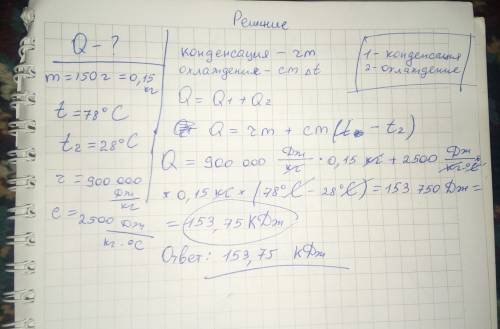 Решение
Q - ?
m = 150 г = 0,15 кг
t = 78°C
t₂ = 28°C
r = 900 000 Дж/кг
c = 2500 Дж/кг·°C
конденсация - rm
охлаждение - cm∆t
1 - конденсация
2 - охлаждение
Q = Q₁ + Q₂
Q = rm + cm(t - t₂)
Q = 900 000 Дж/кг · 0,15 кг + 2500 Дж/кг·°C
× 0,15 кг × (78°C - 28°C) = 153 750 Дж =
= 153,75 КДж
Ответ: 153,75 КДж